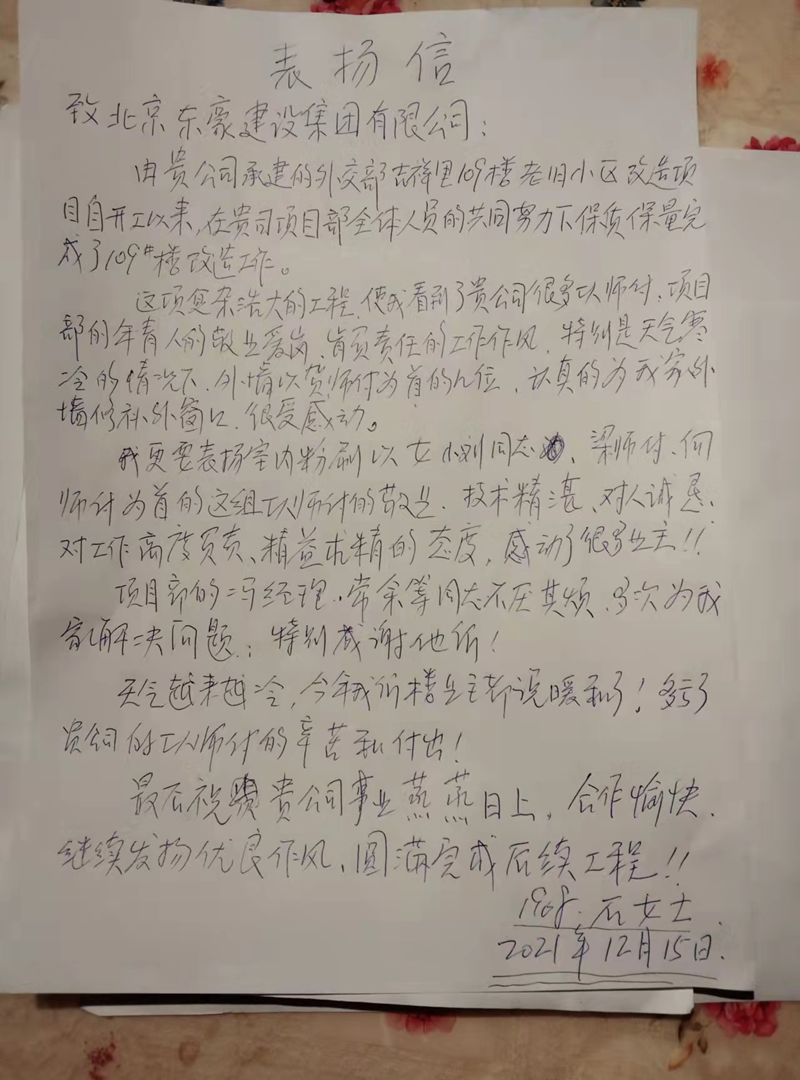 表扬信
致北京东豪建设集团有限公司:
由贵公司承建的外交部吉祥里109楼老旧小区改造项
目自开工以来,在贵司项目部全体人员的共同努力下保质保量完
成了109#楼改造工作。
这项复杂浩大的工程,使我看到了贵公司很多工人师付、项目
部的年青人的敬业爱岗、肯负责任的工作作风,特别是天气寒
冷的情况下,外墙以贺师付为首的几位,认真的为我家外
墙修补外窗口,很受感动。
我更要表扬室内粉刷以女小刘同志、梁师付、何
师付为首的这组工人师付的敬业、技术精湛、对人诚恳、
对工作高度负责、精益求精的态度,感动了很多业主!!
项目部的冯经理、常余等同志不厌其烦,多次为我
家解决问题,特别感谢他们!
天气越来越冷,今年我们楼业主都说暖和了!多亏了
贵司的工人师付的辛苦和付出!
最后祝贵公司事业蒸蒸日上,合作愉快,
继续发扬优良作风,圆满完成后续工程!!
石女士
2021年12月15日.